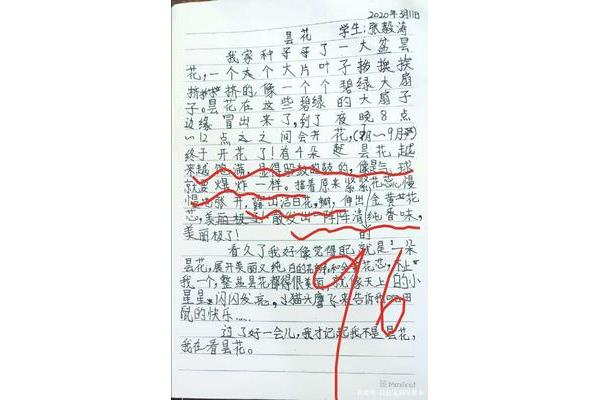 2020年3月11日
昙花 学生:张毅涛
我家种
了一大盆昙
花,一个大个大片叶子挨挨挨
挤挤的像一个个碧绿大扇
子。昙花在这些碧绿的大扇子
边缘冒出来了,到了夜晚8点
~12点之间会开花,(7月~9月)
终于开花了!有4朵昙花越
来越饱满,显得鼓鼓的,像是气球
就要爆炸一样。接着原来紧紧花蕊慢
慢地张开,露出洁白花瓣,伸出金黄花
蕊,美丽极了!散发出一阵阵清纯香味,
美丽极了! 的
看久了我好像觉得自己就是一朵
昙花,展开美丽又纯白的花瓣和金黄花蕊,不止
我一个,整盆昙花都得很美丽,就像天上的小
星星,闪闪发亮。小猫头鹰飞来告诉我吃田
鼠的快乐……
过了好一会儿,我才记起我不是昙花,
我在看昙花。
96